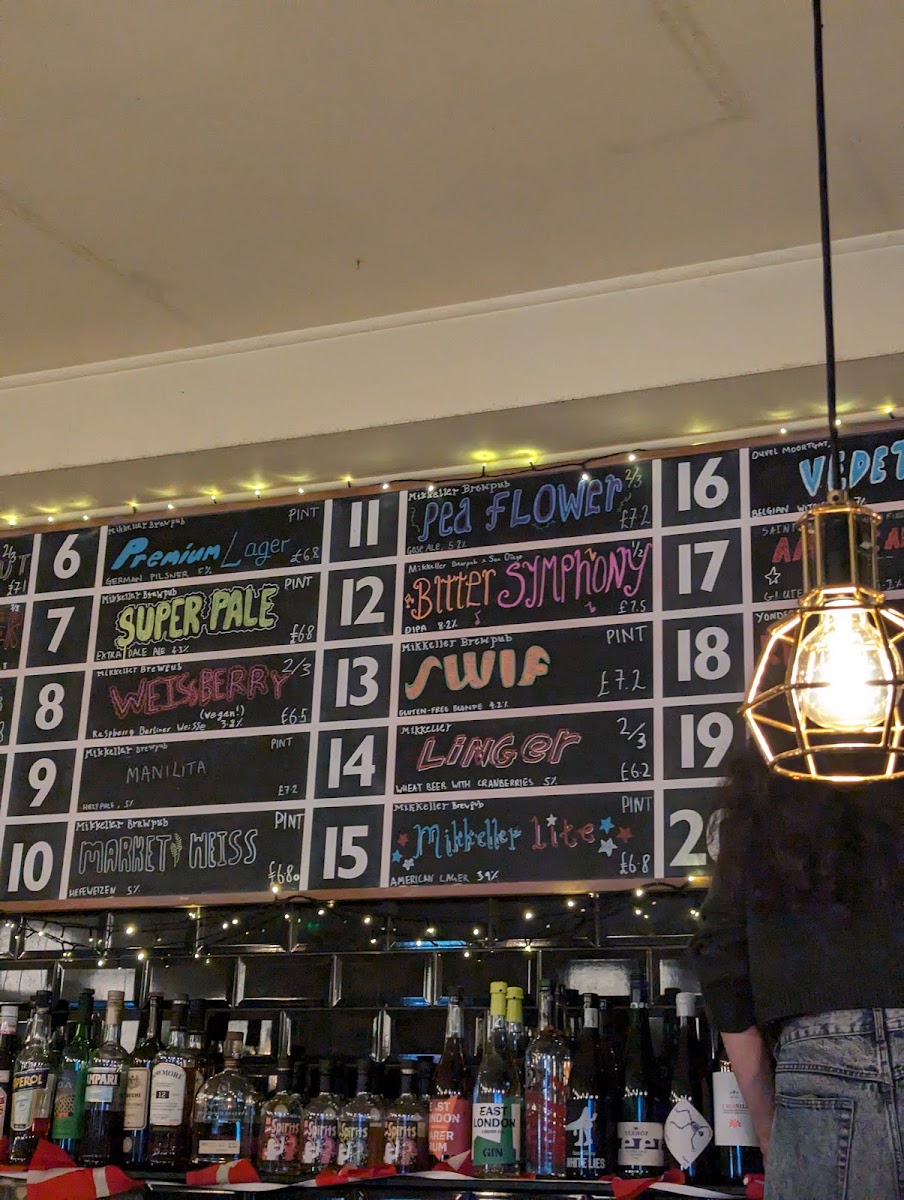 2/3
£7.1
6
Mikkeller Brewpub
PINT
Premium Lager
£6.8
GERMAN PILSNER 5%
7
Mikkeller Brewpub
PINT
SUPER PALE
£6.8
EXTRA PALE ALE
8
Mikkeller Brewpub
2/3
WEISSBERRY
(vegan!)
£6.5
Raspberry Berliner Weisse 3.8%
9
Mikkeller Brewpub
PINT
MANILITA
£7.2
HAZY PALE, 5%
10
Mikkeller Brewpub
PINT
MARKET WEISS
£6.80
HEFEWEIZEN 5%
11
Mikkeller Brewpub
2/3
Pea FLOWER
£7.2
GOSE ALE, 5.2%
12
Mikkeller Brewpub x San Diego
1/2
BITTER SYMPHONY
£7.5
DIPA 8.2%
13
Mikkeller Brewpub
PINT
SWIF
£7.2
GLUTEN-FREE BLONDE 4.2%
14
Mikkeller
2/3
LiNGer
£6.2
WHEAT BEER WITH CRANBERRIES 5%
15
Mikkeller Brewpub
PINT
Mikkeller lite
£6.8
AMERICAN LAGER 3.9%
16
DUVEL MOORTGAT
VEDET
BELGIAN WIT
17
SAINT
GLUTE
18
YONDER
19
20
APEROL
CAMPARI
BOWMORE
12
Spirits
Spirits
Spirits
Spirits
EAST
LONDON
RUM
EAST
LONDON
GIN
WHITE LIES